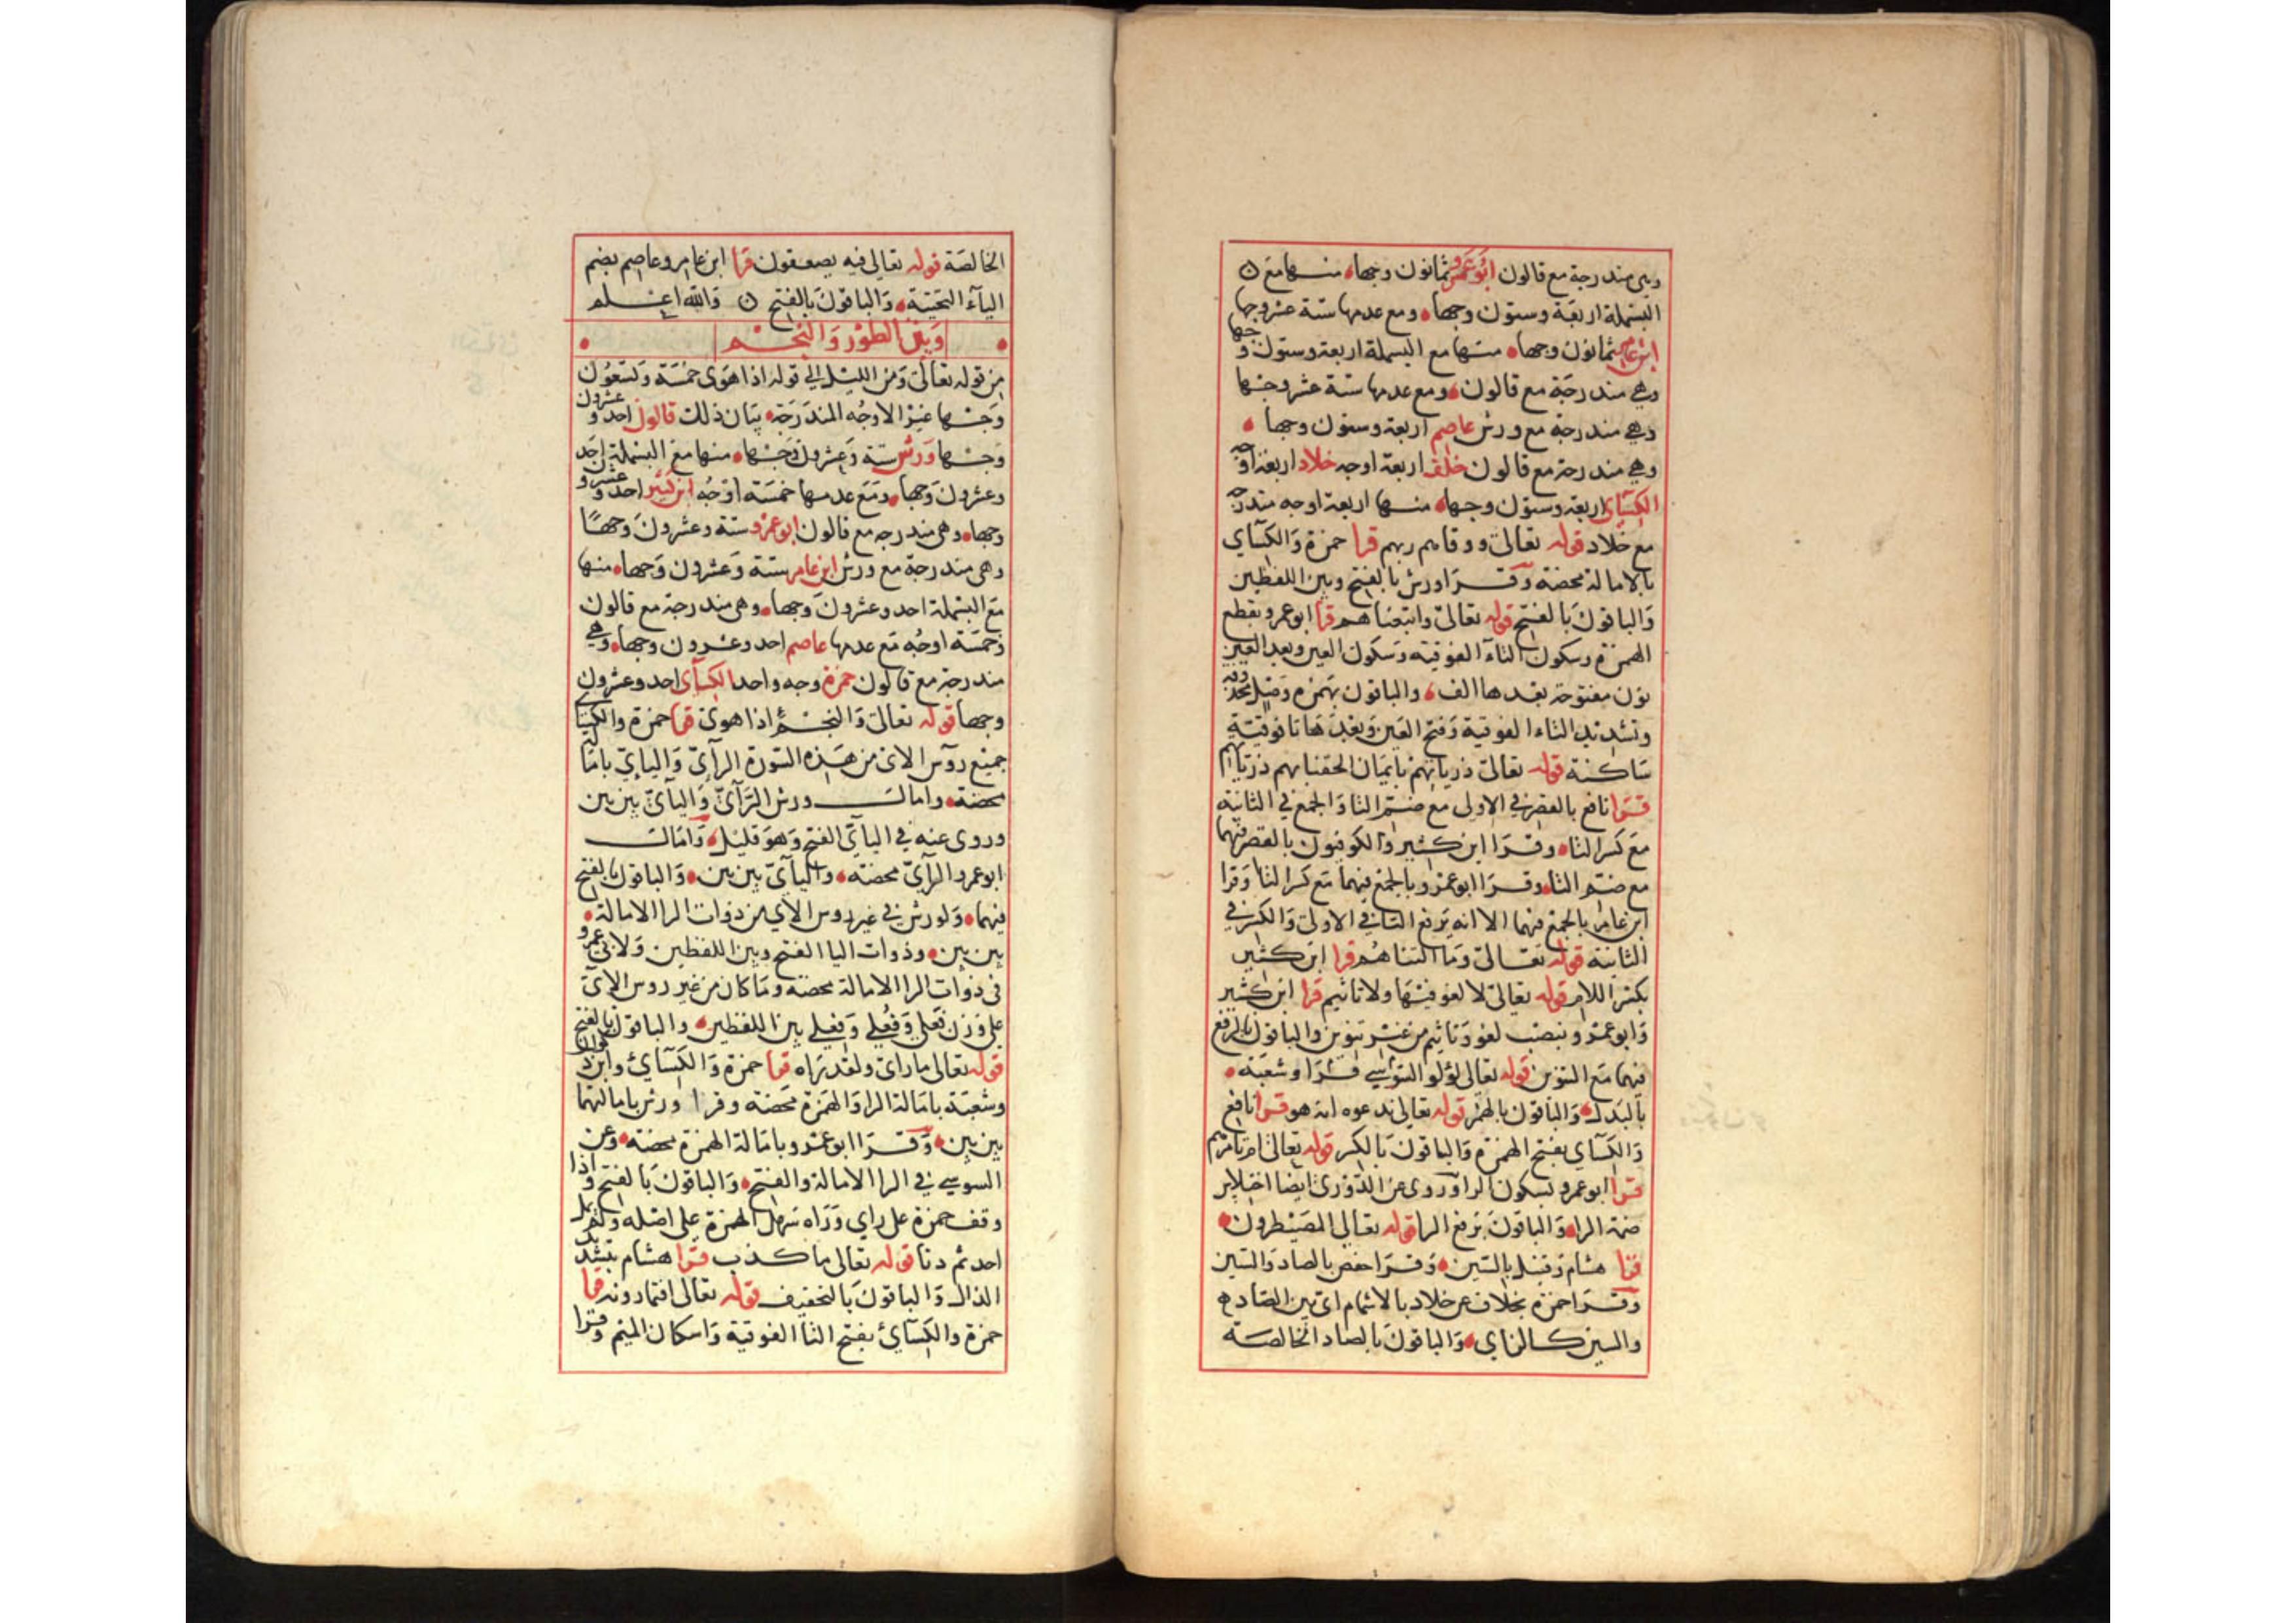 وهي مندرجة مع قالون ابوعمرو ثمانون وجها منها مع
البسملة اربعة وستون وجها ومع عدمها ستة عشر وجها
ابن عامر ثمانون وجها منها مع البسملة اربعة وستون وجها
وهي مندرجة مع قالون ومع عدمها ستة عشر وجها
وهي مندرجة مع ورش عاصم اربعة وستون وجها
وهي مندرجة مع قالون خلف اربعة اوجه خلاد اربعة اوجه
الكسآي اربعة وستون وجها منها اربعة اوجه مندرجة
مع خلاد قوله تعالى ووقاهم ربهم قرا حمزة والكسآي
بالامالة محضة وقرا ورش بالفتح وبين اللفظين
والباقون بالفتح قوله تعالى واتبعناهم قرا ابوعمرو بقطع
الهمزة وسكون التآء الفوقية وسكون العين وبعد العين
نون مفتوحة بعدها الف والباقون بهمزة وصل
وتشديد التاء الفوقية وفتح العين وبعدها تا فوقية
ساكنة قوله تعالى ذرياتهم بايمان الحقنا بهم ذرياتهم
قرا نافع بالقصر في الاولى مع ضم التا والجمع في الثانية
مع كسر التا وقرا ابن كثير والكوفيون بالقصر فيهما
مع ضم التا وقرا ابوعمرو بالجمع فيهما مع كسر التا وقرا
ابن عامر بالجمع فيهما الا انه يرفع التا في الاولى والكسر في
الثانية قوله تعالى وما التناهم قرا ابن كثير
بكسر اللام قوله تعالى لا لغو فيها ولا تاثيم قرا ابن كثير
وابوعمرو بنصب لغو وتاثيم من غير تنوين والباقون بالرفع
فيهما مع التنوين قوله تعالى لؤلؤ السوسي قرا وشعبة
بالبدل والباقون بالهمز قوله تعالى ندعوه انه هو قرا نافع
والكسآي بفتح الهمزة والباقون بالكسر قوله تعالى ام تامرهم
قرا ابوعمرو بسكون الرا وروى عن الدوري ايضا اختلاس
ضمة الرا والباقون برفع الرا قوله تعالى المصيطرون
قرا هشام وقنبل بالسين وقرا حفص بالصاد والسين
وقرا حمزة بخلاف عن خلاد بالاشمام اي بين الصاد
والسين كالزاي والباقون بالصاد الخالصة
الخالصة قوله تعالى فيه يصعقون قرا ابن عامر وعاصم بضم
اليآء التحتية والباقون بالفتح والله اعلم
وبين الطور والنجم
من قوله تعالى ومن الليل الى قوله اذا هوى خمسة وتسعون
وجها غير الاوجه المندرجة بيان ذلك قالون احد وعشرون
وجها ورش ستة وعشرون وجها منها مع البسملة احد
وعشرون وجها ومع عدمها خمسة اوجه ابن كثير احد وعشرون
وجها وهي مندرجه مع قالون ابوعمرو ستة وعشرون وجها
وهي مندرجة مع ورش ابن عامر ستة وعشرون وجها منها
مع البسملة احد وعشرون وجها وهي مندرجة مع قالون
وخمسة اوجه مع عدمها عاصم احد وعشرون وجها وهي
مندرجة مع قالون حمزة وجه واحد الكسآي احد وعشرون
وجها قوله تعالى والنجم اذا هوى قرا حمزة والكسآي
جميع روس الاى من هذه السورة الرآي واليايي بامالة
محضة وامال ورش الرآي واليآي بين بين
وروى عنه في اليآي الفتح وهو قليل وامال
ابوعمرو الرآي محضة واليآي بين بين والباقون بالفتح
فيهما ولورش في غير روس الاي من ذوات الرا الامالة
بين بين وذوات اليا الفتح وبين اللفظين ولابي عمرو
في ذوات الرا الامالة محضة وما كان من غير روس الاى
على وزن فعلى وفعلى وفعلى بين اللفظين والباقون بالفتح
قوله تعالى ما راى ولقد راه قرا حمزة والكسآي وابن ذكوان
وشعبة بامالة الرا والهمزة محضة وقرا ورش بامالتهما
بين بين وقرا ابوعمرو بامالة الهمزة محضة وعن
السوسي في الرا الامالة والفتح والباقون بالفتح واذا
وقف حمزة على راي وراه سهل الهمزة على اصله
احد ثم دنا قوله تعالى ما كذب قرا هشام بتشديد
الذال والباقون بالتخفيف قوله تعالى افتمارونه قرا
حمزة والكسآي بفتح التا الفوقية واسكان الميم وقرا